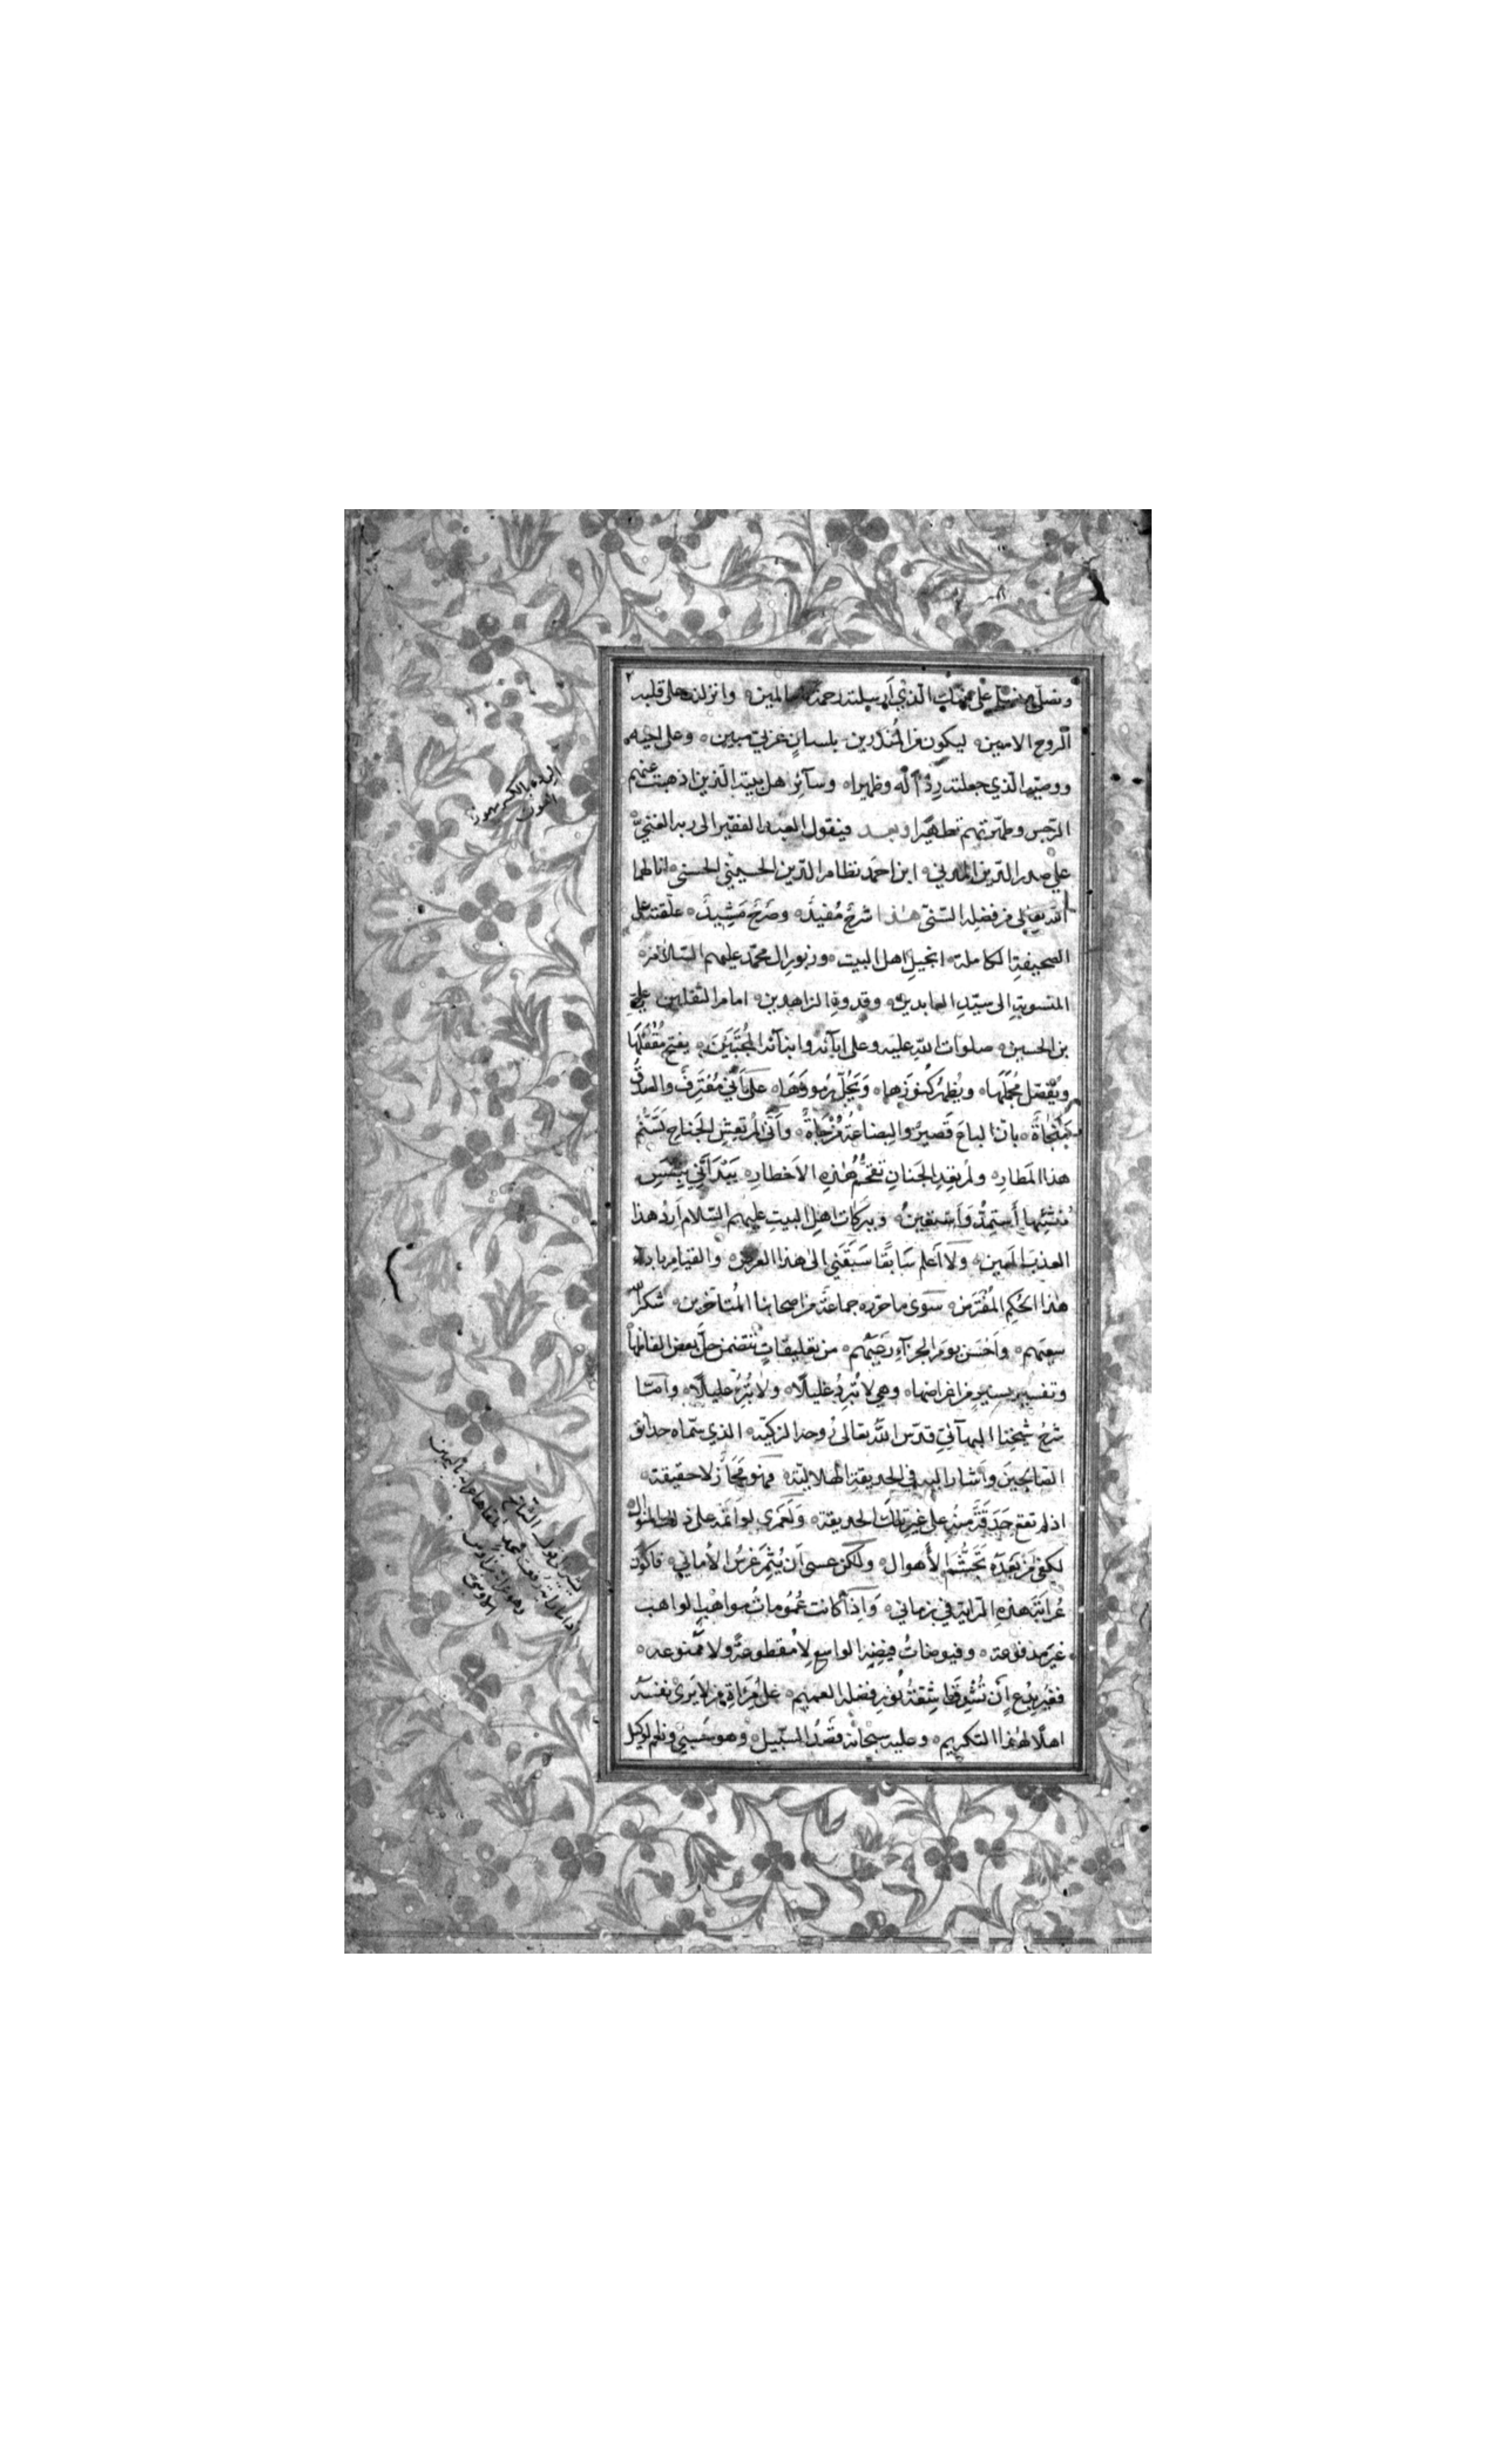 ونصلي ونسلم على محمد الذي أرسلته رحمة للعالمين وانزلت على قلبه
الروح الامين ليكون من المنذرين بلسان عربي مبين وعلى اخيه
ووصيه الذي جعلته ردءاً له وظهيرا وسآئر اهل بيته الذين اذهبت عنهم
الرجس وطهرتهم تطهيرا وبعد فيقول العبد الفقير الى ربه الغني
علي صدر الدين المدني ابن احمد نظام الدين الحسيني الحسني انالهما
الله تعالى من فضله السني هذا شرح مفيد وصرح مشيد علقته على
الصحيفة الكاملة انجيل اهل البيت وزبور ال محمد عليهم السلام
المنسوبة الى سيد العابدين وقدوة الزاهدين امام الثقلين علي
بن الحسين صلوات الله عليه وعلى ابآئه وابنآئه المجتبين يفتح مقفلها
ويفصل مجملها ويظهر كنوزها ويحل رموزها على أني معترف والصدق
منجاة بان الباع قصير والبضاعة مزجاة وأنى لمرتعش الجناح تسنم
هذا المطار ولمرتعد الجنان تقحم هذه الاخطار بيد أني بيمن
منشئها أستمد وأستعين وببركات اهل البيت عليهم السلام أرد هذا
العذب المعين ولا أعلم سابقا سبقني الى هذا الغرض والقيام باداء
هذا الحكم المفترض سوى ما حرره جماعة من اصحابنا المتأخرين شكر الله
سعيهم وأحسن يوم الجزآء رعيهم من تعليقات تتضمن حل بعض الفاظها
وتفسير يسير من اغراضها وهي لا تبرد غليلا ولا تبرئ عليلا وامّا
شرح شيخنا البهآئي قدس الله تعالى روحه الزكية الذي سماه حدائق
الصالحين وأشار اليه في الحديقة الهلالية فهو مجاز لا حقيقة
اذ لم تقع حدقة منه على غير تلك الحديقة ولعمري لو أتمه على ذلك المنوال
لكفى من بعده تجشم الأهوال ولكن عسى أن يثمر غرس الأماني فاكون
عرابة هذه الراية في زماني وإذا كانت عمومات مواهب الواهب
غير مدفوعة وفيوضات فيضه الواسع لا مقطوعة ولا ممنوعة
فغير بدع أن تشرق اشعة نور فضله العميم على مرآة من لا يرى نفسه
اهلا لهذا التكريم وعليه سبحانه قصد السبيل وهو حسبي ونعم الوكيل